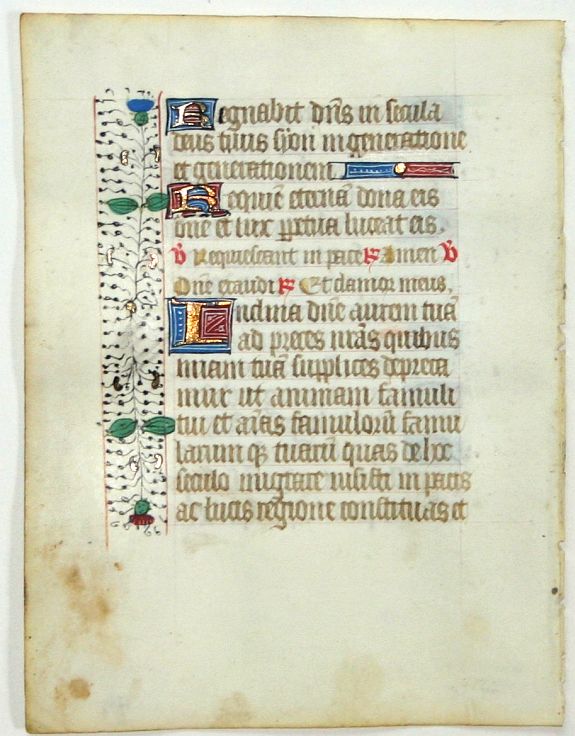 Regnabit dñs in secula
deus tuus syon in generatione
et generationem.
Requiē eternā dona eis
dñe et lux ppetua luceat eis.
v Requiescant in pace R Amen v
Dñe exaudi R Et clamor meus.
Inclina dñe aurem tuā
ad preces nrās quibus
miam tuā supplices depreca
mur ut animam famuli
tui et aīas famulorū famu
larum q tuarū quas de hoc
seculo migrare iussisti in pacis
ac lucis regione constituas et